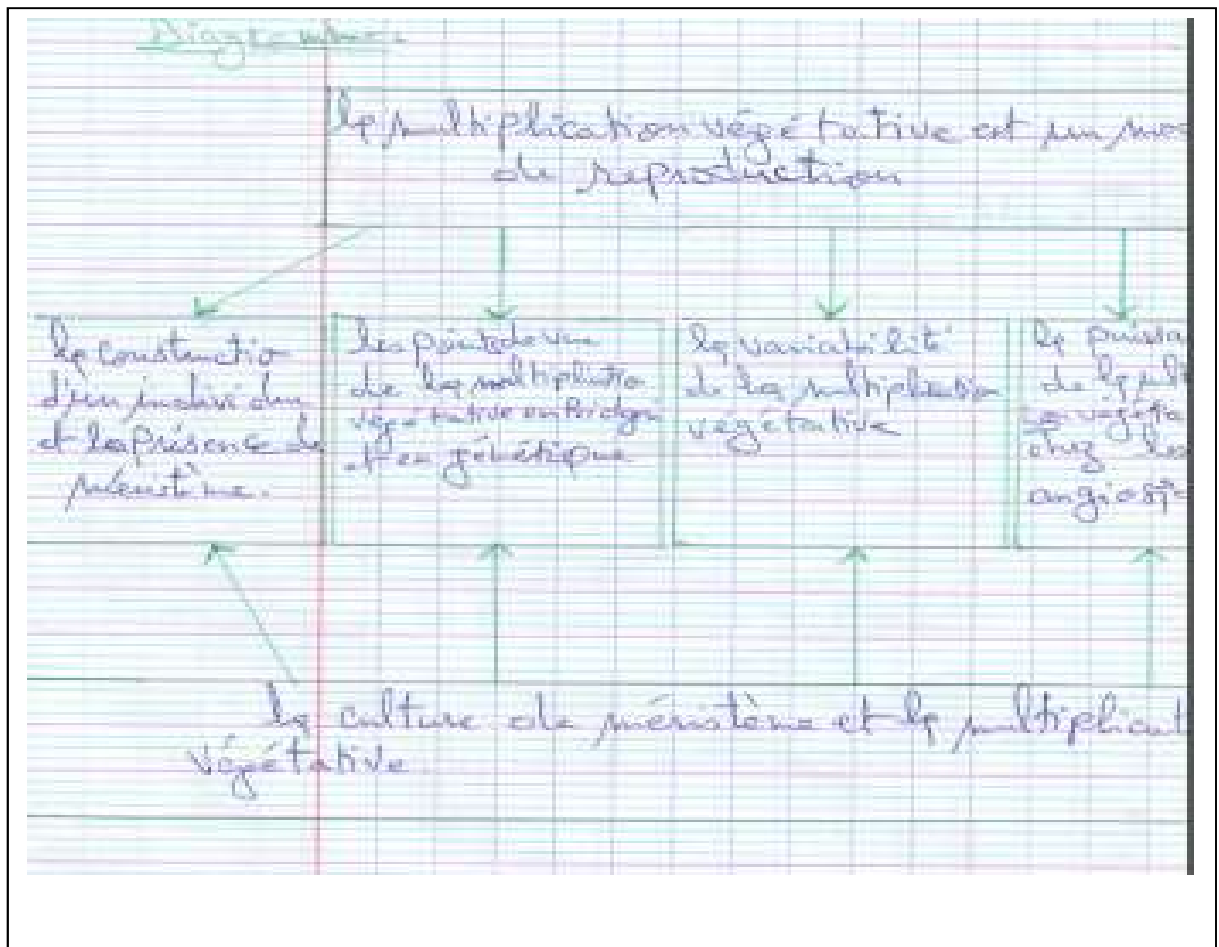 Diagramme
la multiplication végétative est un mo
de reproduction
la constructio
d'un individu
et la présence de
méristème.
les points de vue
de la multiplicatio
végétative en
et en génétique
la variabilité
de la multiplication
végétative
la puissa
de la mul
végéta
chez les
angiosp
la culture de méristème et la multiplicat
végétative.